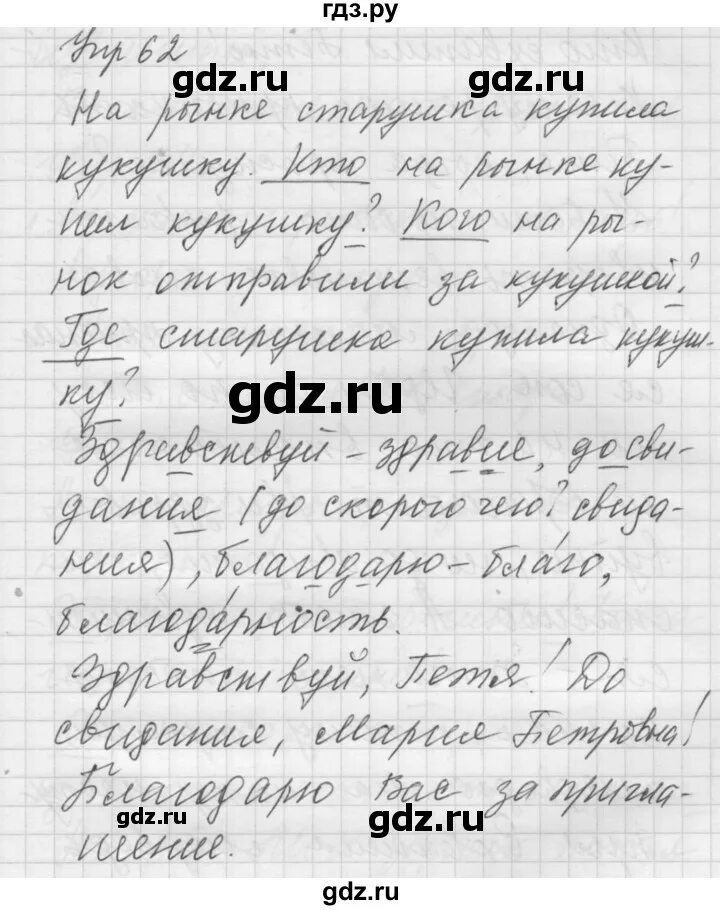 гдз.ру
Упр 62
gdz.ru
На рынке старушка купила
кукушку. Кто на рынке ку-
пил кукушку? Кого на ры-
нок отправили за кукушкой?
Где старушка купила кукуш-
ку?
gdz.ru
Здравствуй – здравие, до сви-
дания (до скорого чего? свида-
ния), благодарю – благо,
благодарность.
Здравствуй, Петя! До
свидания, Мария Петровна!
Благодарю Вас за пригла-
gdz.ru gdz.ru
шение.
gdz.ru